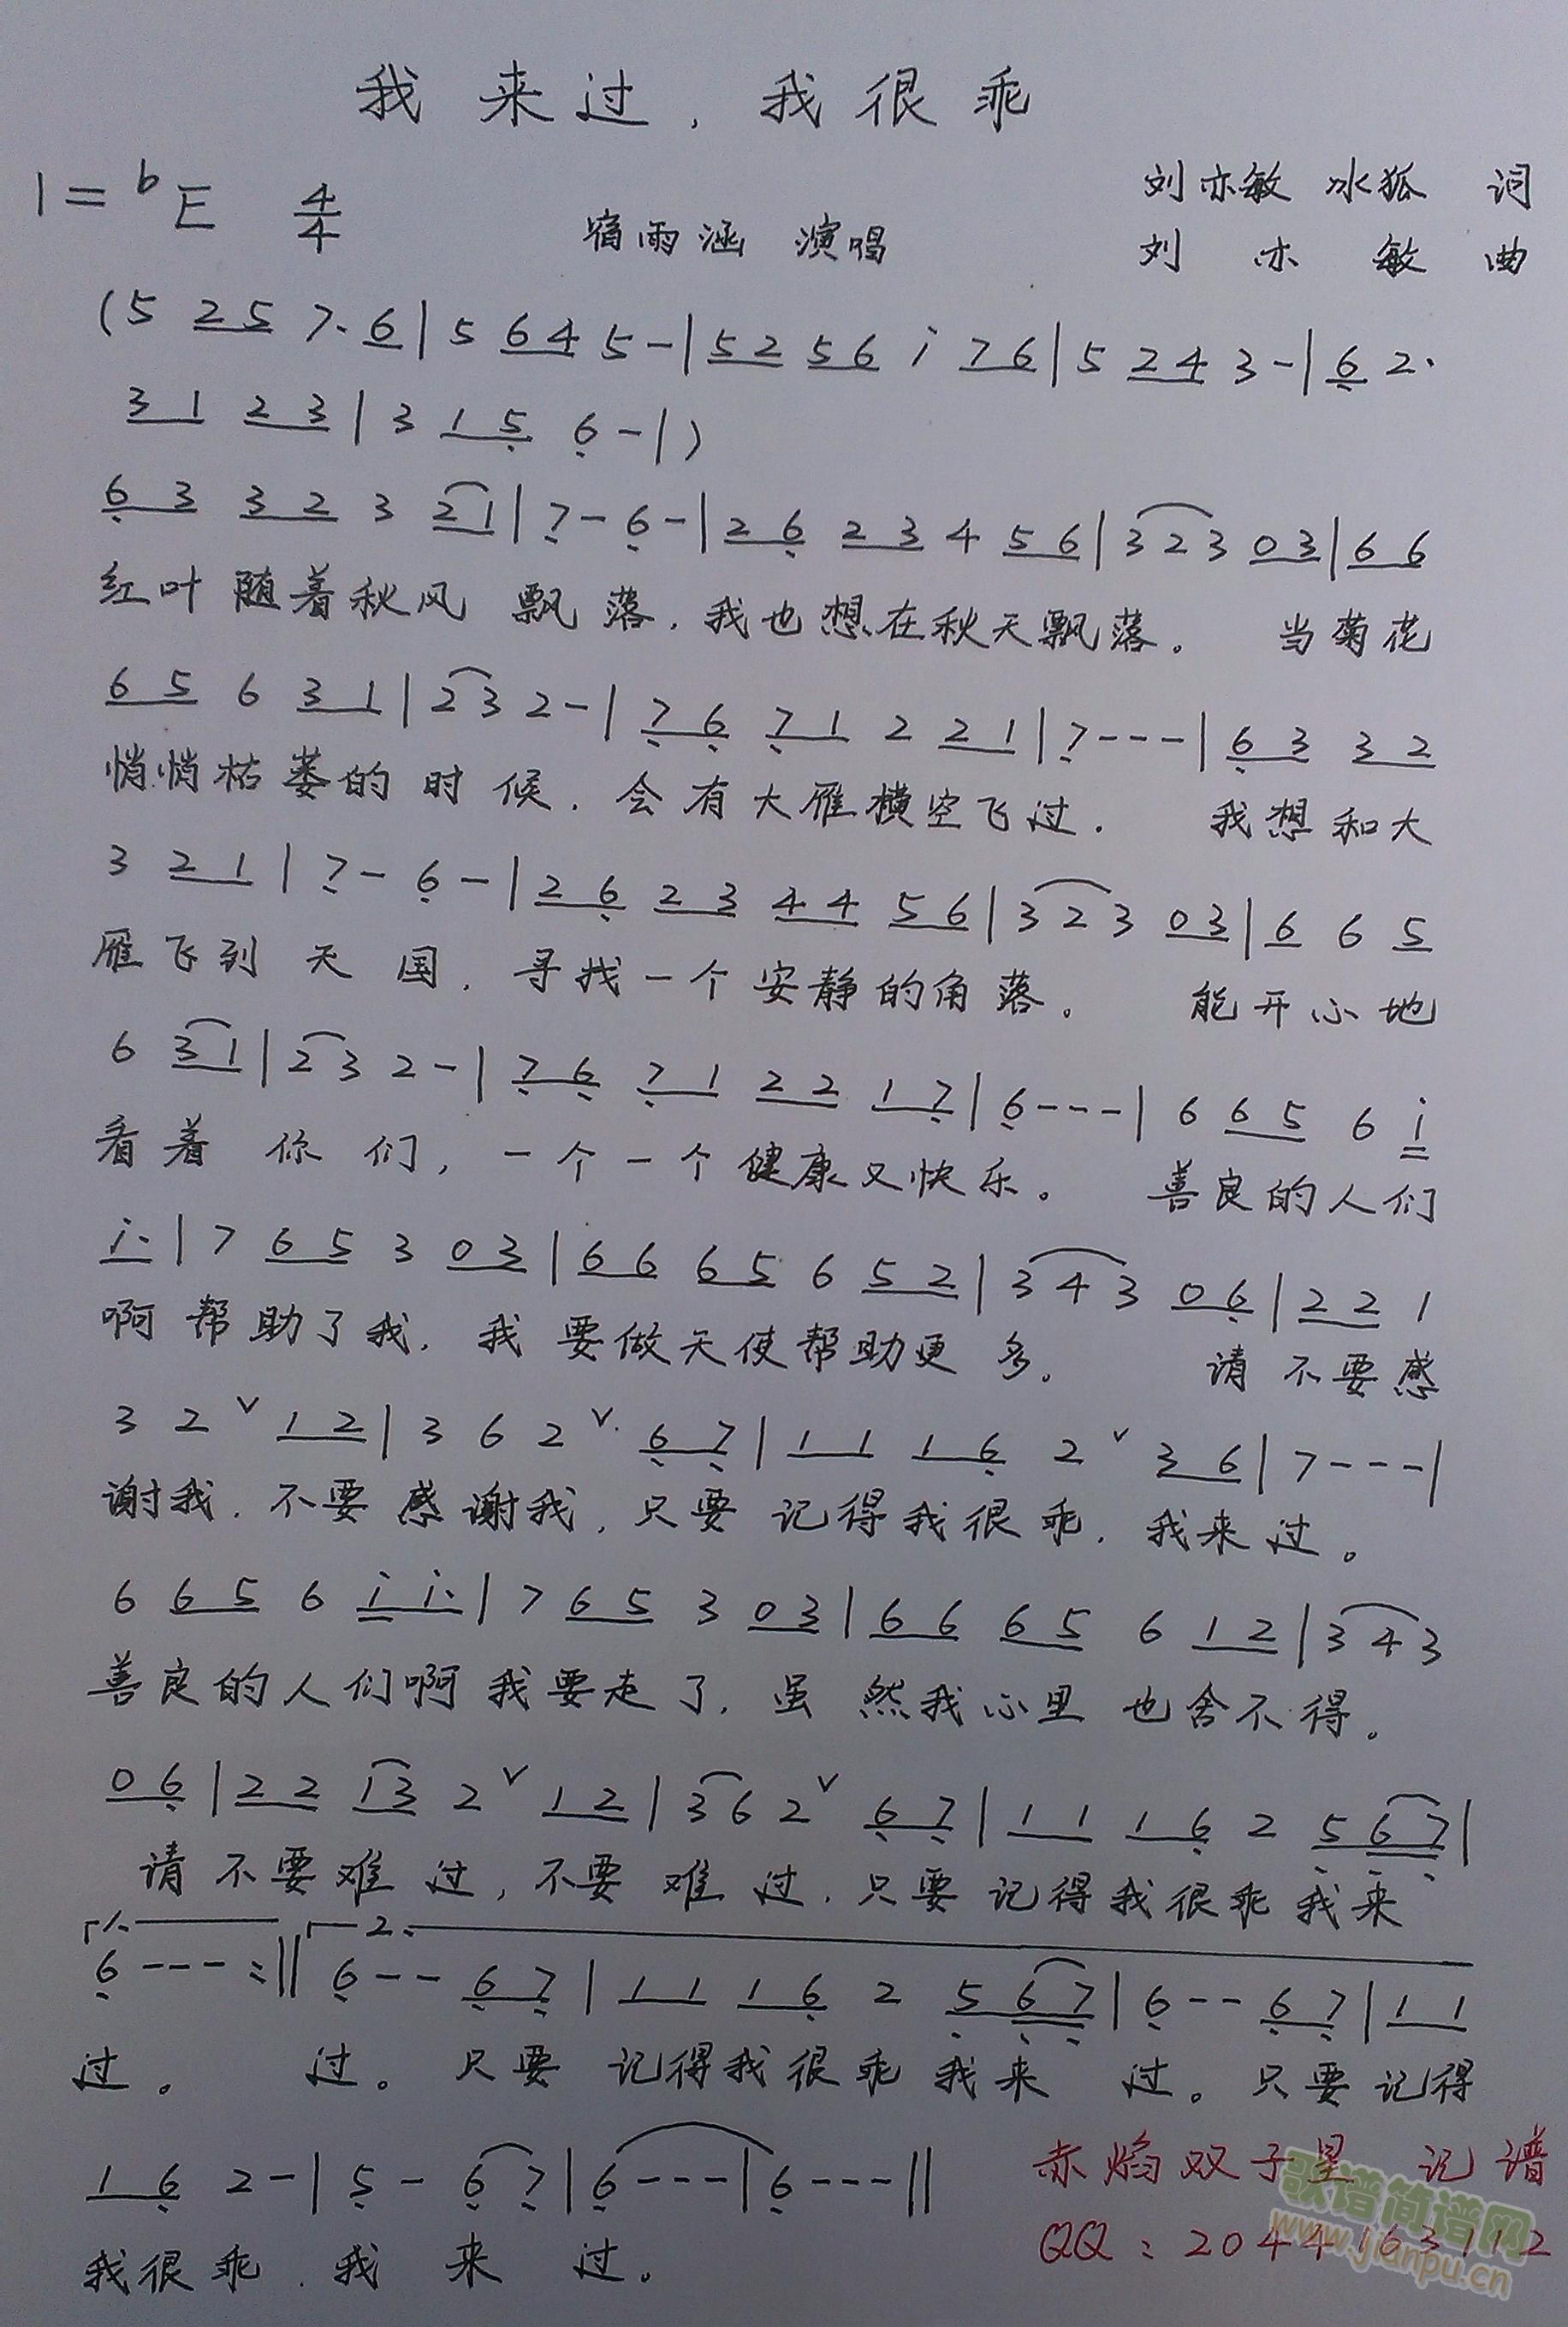 我来过，我很乖
1=bE 4/4
刘亦敏 冰狐 词
宿雨涵 演唱
刘亦敏 曲
(5 25 7· 6|5 64 5-|52 56 i 76|5 24 3-|6 2·
31 23|3 15 6-|)
63 32 3 21|7-6-|26 23 4 56|323 03|66
红叶随着秋风飘落，我也想在秋天飘落。当菊花
65 6 31|23 2-|76 71 2 21|7---|63 32
悄悄枯萎的时候，会有大雁横空飞过。我想和大
3 21|7-6-|26 23 44 56|323 03|6 6 5
雁飞到天国，寻找一个安静的角落。能开心地
6 31|23 2-|76 71 22 17|6---|6 65 6 i
看着你们，一个一个健康又快乐。善良的人们
i·|7 65 3 03|66 65 6 52|343 06|22 1
啊帮助了我，我要做天使帮助更多。请不要感
3 2 v 12|3 6 2 v 67|11 16 2 v 36|7---|
谢我，不要感谢我，只要记得我很乖，我来过。
6 65 6 i i·|7 65 3 03|66 65 6 12|343
善良的人们啊我要走了，虽然我心里也舍不得。
06|22 13 2 v 12|36 2 v 67|11 16 2 567|
请不要难过，不要难过，只要记得我很乖我来
1. 2.
6---:‖6--67|11 16 2 567|6--67|11
过。过。只要记得我很乖我来过。只要记得
16 2-|5-67|6---|6---‖
我很乖，我来过。
赤焰双子星 记谱
QQ：2044163112
歌谱简谱网
www.jianpu.cn